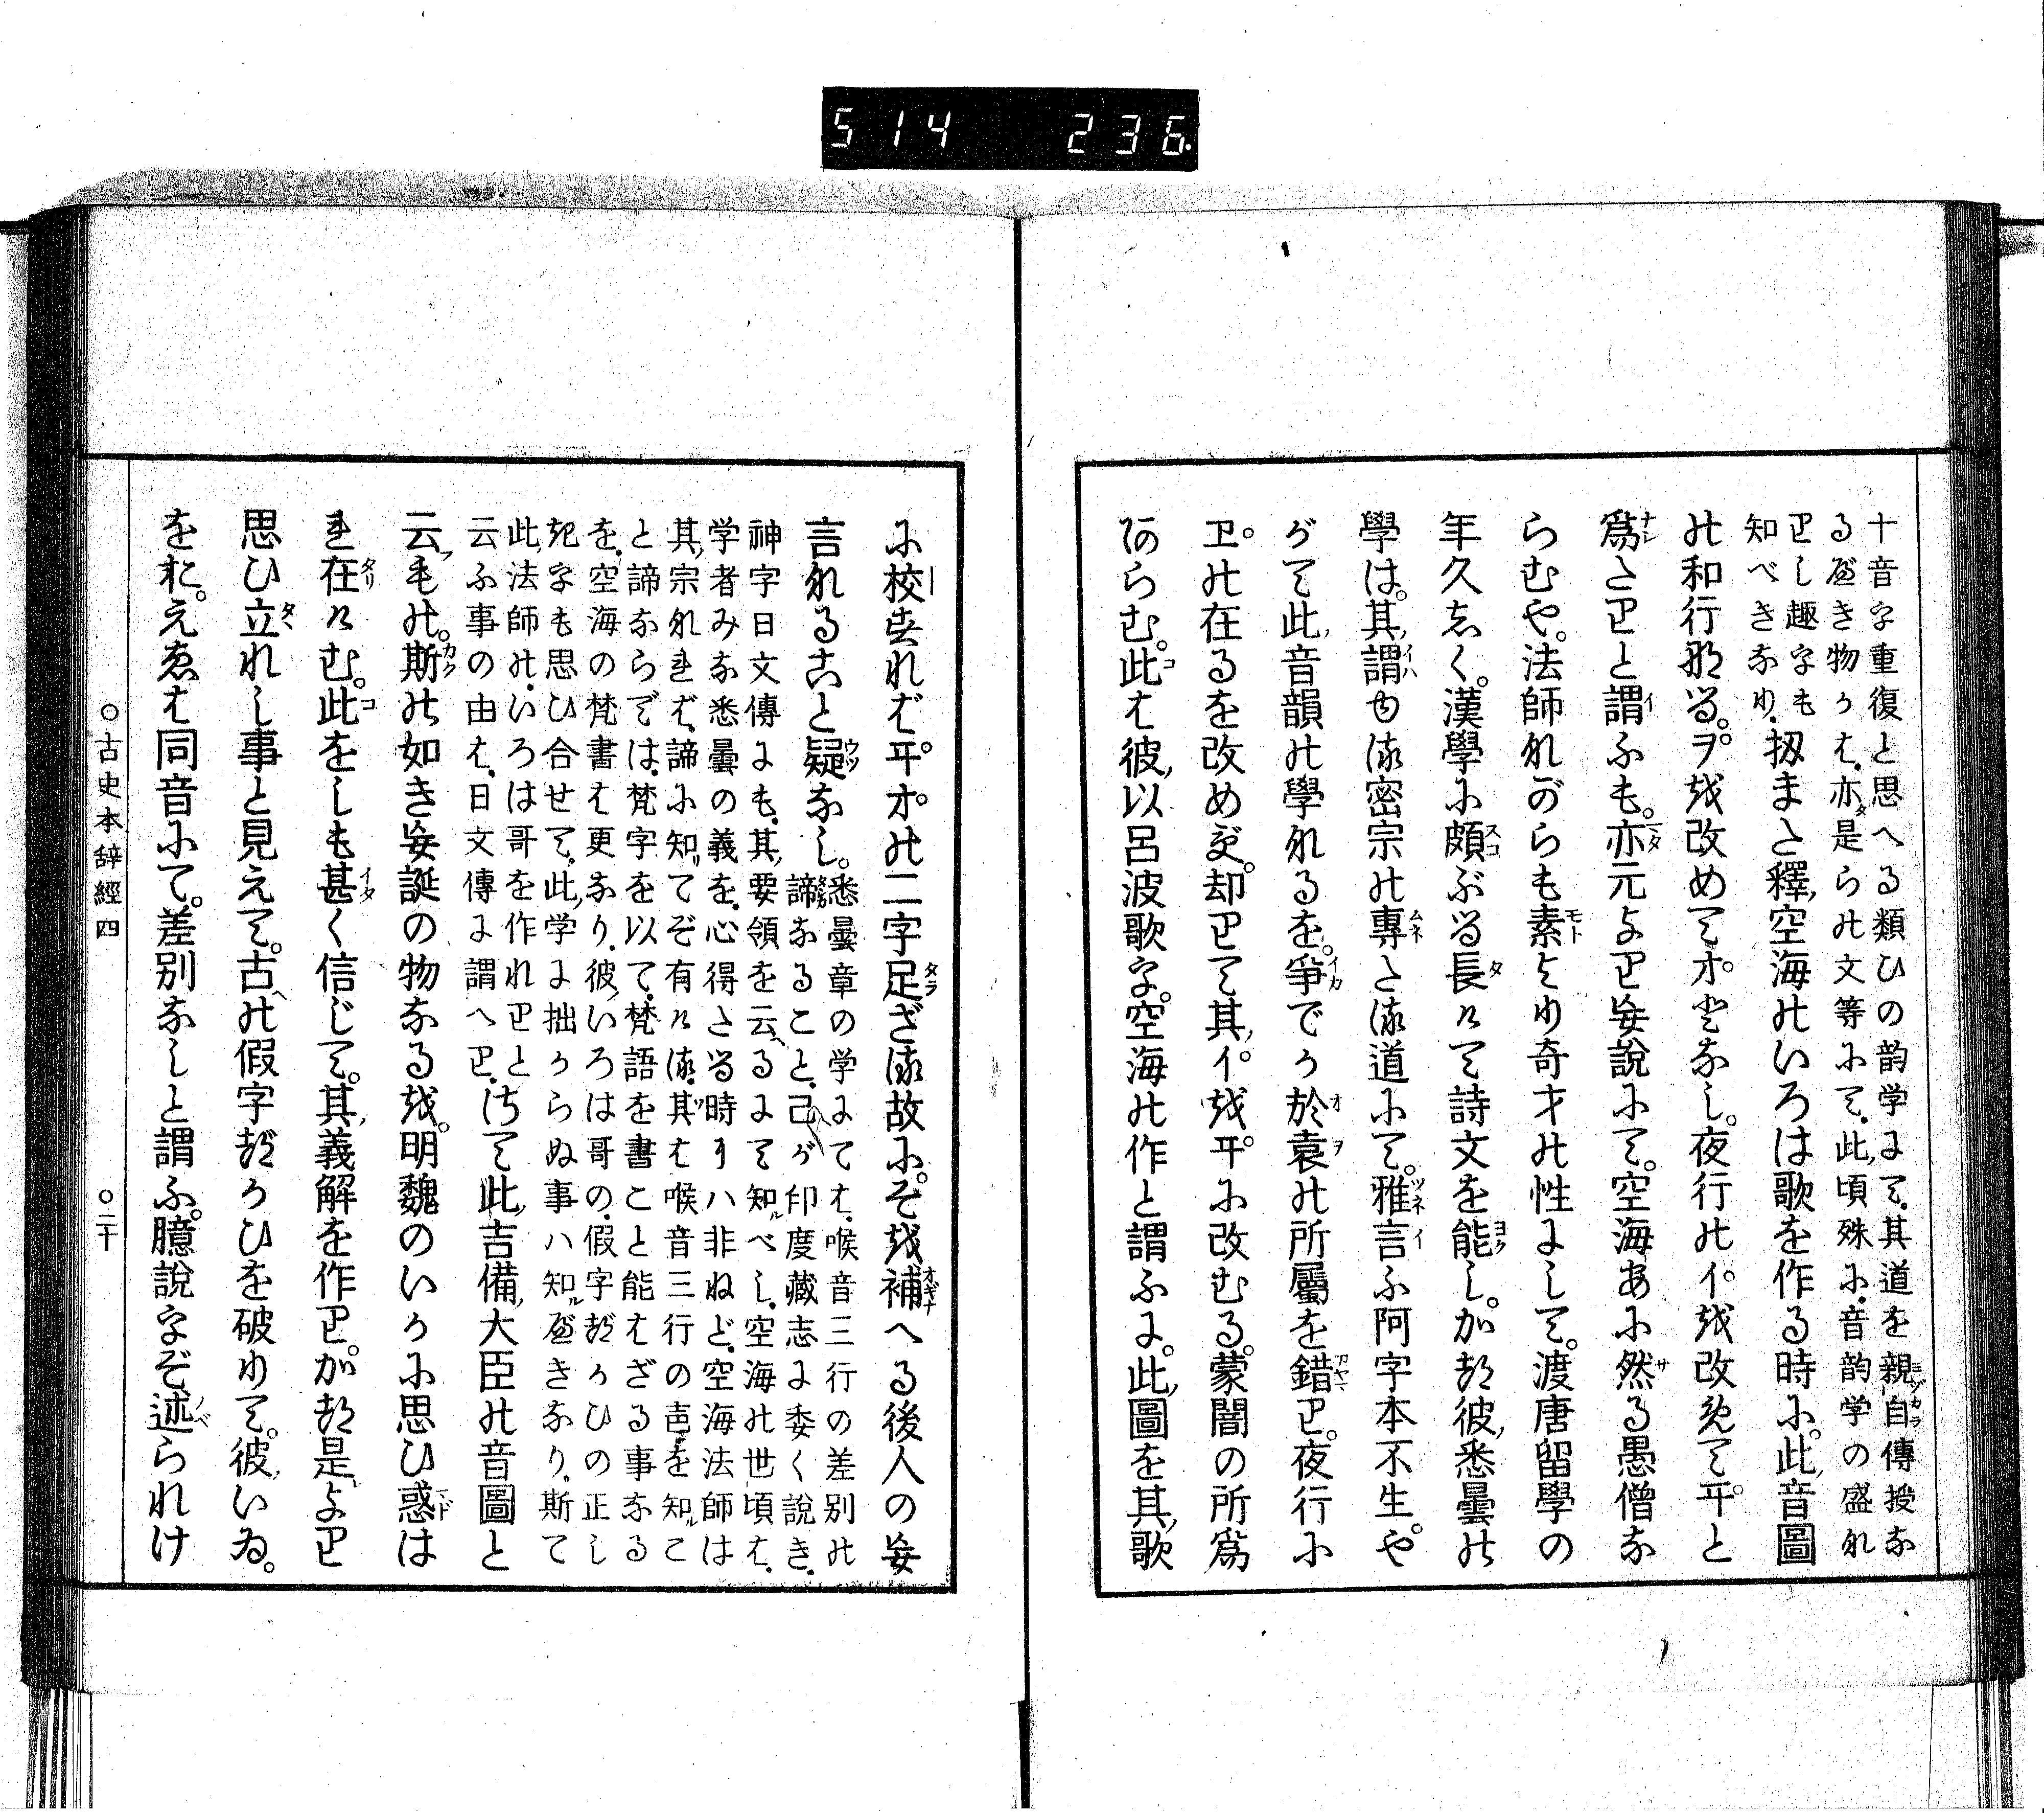 514 236
十音字重復と思へる類ひの韵学にて、其道を親自傳授な
る可き物うは、亦是らの文等にて、此頃殊に、音韵学の盛れ
りし趣字も
知べきなり、扨また釋空海のいろは歌を作る時に、此音圖
の和行なる。ヲを改めてオとなし。夜行のイを改めてヰと
爲たりと謂ふも。亦元より妄說にて。空海あに然る愚僧な
らむや。法師ながらも素より奇才の性にして。渡唐留學の
年久しく。漢學に頗ぶる長けて詩文を能し。かつ彼悉曇の
學は。其謂ゆる密宗の專とる道にて。雅言ふ阿字本不生。や
がて此音韻の學なるを。爭でか於袁の所屬を錯り。夜行に
ヱの在るを改めず。却りて其イを。ヰに改むる。蒙闇の所爲
あらむ。此は彼以呂波歌を。空海の作と謂ふに。此圖を其歌
に校すれば。ヰオの二字足ざる故に。そを補へる後人の妄
言なること疑なし。
悉曇章の学にては、喉音三行の差別の
諦なること、己が印度藏志に委く說き、
神字日文傳にも、其要領を云へるにて知べし、空海の世頃は、
学者みな悉曇の義を、心得たる時ハ非ねど、空海法師は
其宗なれば、諦に知てぞ有ける、其は喉音三行の声を知こ
と諦ならでは、梵字を以て、梵語を書こと能はざる事なる
を、空海の梵書は更なり、彼いろは哥の、假字づかひの正し
きをも思ひ合せて、此学に拙からぬ事ハ知べきなり、斯て
此法師の、いろは哥を作れりと
云ふ事の由は、日文傳に謂へり、
さて此吉備大臣の音圖と
云もの。斯の如き妄誕の物なるを。明魏のいかに思ひ惑は
れ在けむ。此をしも甚く信じて。其義解を作り。かつ是より
思ひ立れし事と見えて。古の假字づかひを破りて。彼いゐ。
をお。えゑは同音にて。差別なしと謂ふ。臆說をぞ述られけ
○古史本辭經四 ○二十